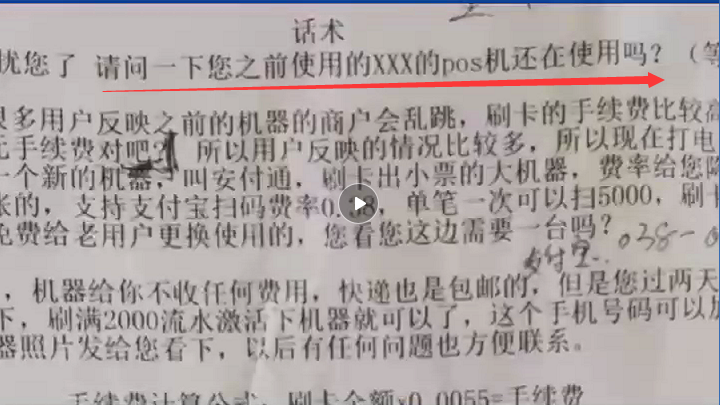 话术
扰您了 请问一下您之前使用的XXX的pos机还在使用吗？（等
很多用户反映之前的机器的商户会乱跳，刷卡的手续费比较高
元手续费对吧？ 所以用户反映的情况比较多，所以现在打电
一个新的机器，叫安付通，刷卡出小票的大机器，费率给您降
张的，支持支付宝扫码费率0.38，单笔一次可以扫5000，刷卡
免费给老用户更换使用的，您看您这边需要一台吗？
支付宝.. 038-0
，机器给你不收任何费用，快递也是包邮的，但是您过两天
下，刷满2000流水激活下机器就可以了，这个手机号码可以加
器照片发给您看下，以后有任何问题也方便联系。
手续费计算公式：刷卡金额x0.0055=手续费